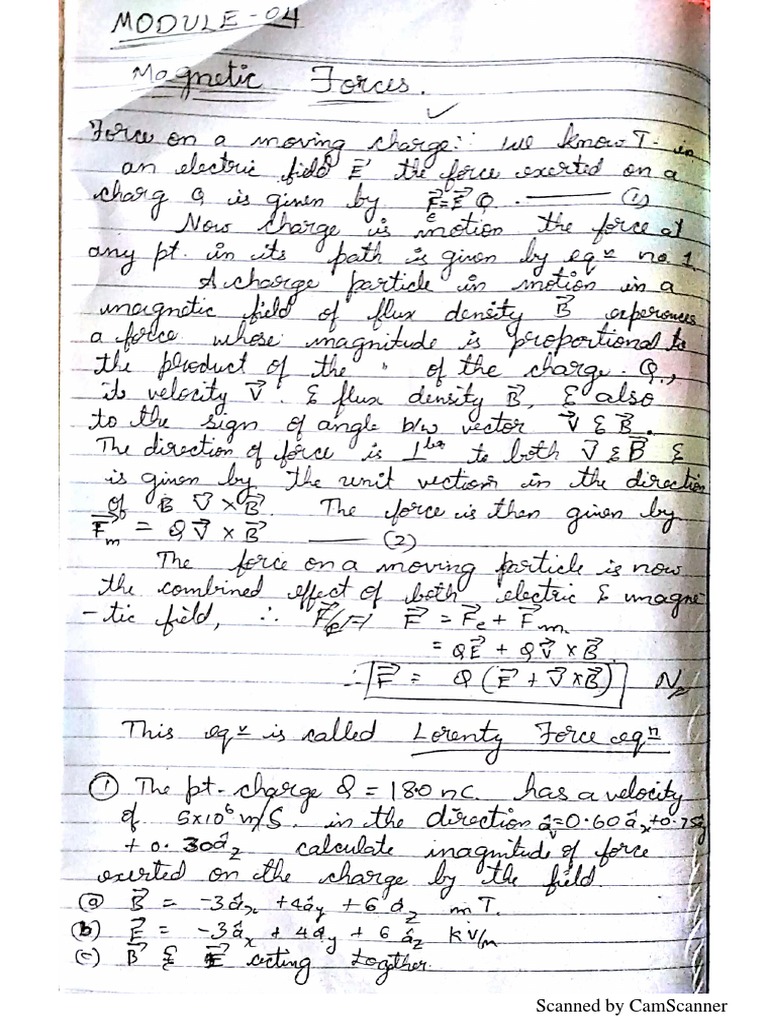 MODULE-04
Magnetic Forces.
Force on a moving charge:- we know T. in
an electric field E⃗ the force exerted on a
charg Q is given by F⃗e = E⃗ Q. ——— (1)
Now charge is motion the force at
any pt. in its path is given by eqn no 1.
A charge particle in motion in a
magnetic field of flux density B⃗ experiences
a force whose magnitude is proportional to
the product of the " of the charge. Q.,
its velocity V⃗. & flux density B⃗, & also
to the sign of angle b/w vector V⃗ & B⃗.
The direction of force is ⊥ler to both V⃗ & B⃗ &
is given by the unit vections in the direction
of B V⃗ × B⃗. The force is then given by
F⃗m = Q V⃗ × B⃗ ——— (2)
The force on a moving particle is now
the combined effect of both electric & magne
-tic field, ∴ F⃗ = F⃗e + F⃗m
= QE⃗ + QV⃗ × B⃗
∴ F⃗ = Q (E⃗ + V⃗ × B⃗) N
This eqn is called Lorenty Force eqn
① The pt. charge Q = 180 nC. has a velocity
of 5×10⁶ m/s. in the direction âv=0.60âx+0.75ây
+ 0.30âz calculate magnitude of force
exerted on the charge by the field.
(a) B⃗ = -3âx +4ây +6âz mT.
(b) E⃗ = -3âx + 4ây + 6âz kV/m
(c) B⃗ & E⃗ acting together.
Scanned by CamScanner